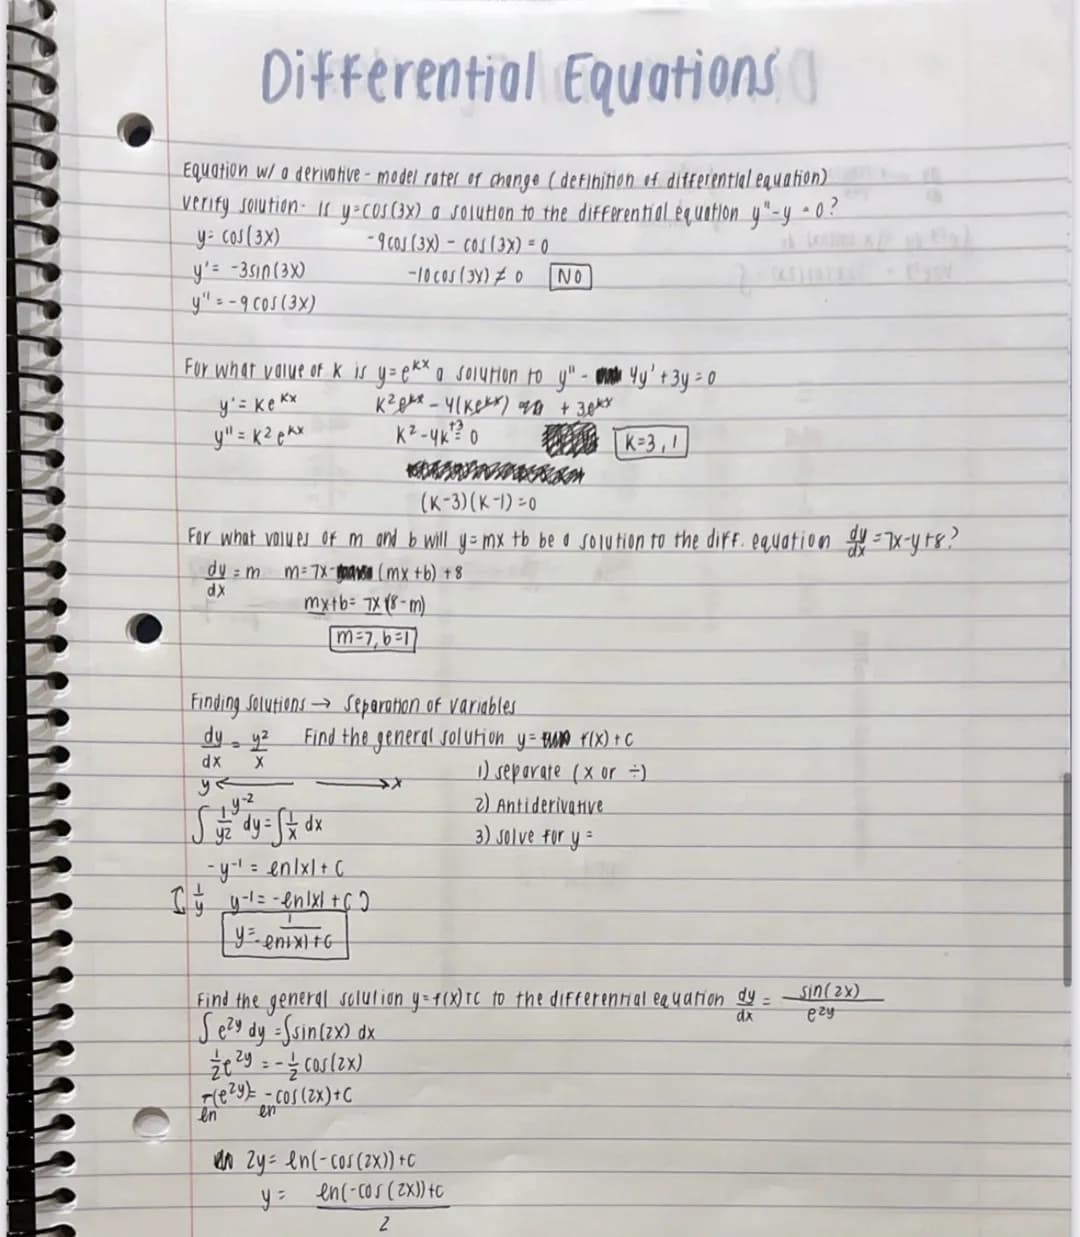 Differential Equations
Equation w/ a derivative - model rates of change (definition of differential equation)
Verify solution - Is y=cos(3x) a solution to the differential equation y"-y=0?
y= cos(3x) -9cos(3x) - cos(3x) = 0
y'= -3sin(3x) -10cos(3x) ≠ 0 NO
y"= -9cos(3x)
For what value of k is y=e^kx a solution to y" - 4y' + 3y = 0
y'= ke^kx k²e^kx - 4(ke^kx) + 3e^kx
y" = k²e^kx k²-4k+3 = 0 k=3, 1
(k-3)(k-1)=0
For what values of m and b will y=mx+b be a solution to the diff. equation dy/dx = 7x-y+8?
dy/dx = m m= 7x- (mx+b) +8
mx+b= 7x+(8-m)
m=7, b=1
Finding solutions → Separation of variables
dy/dx = y²/x Find the general solution y= f(x)+C
y ← → x 1) separate (x or ÷)
∫ 1/y² y⁻² dy = ∫ 1/x dx 2) Antiderivative
3) solve for y =
-y⁻¹ = ln|x| + C
1/y y⁻¹= -ln|x| + C
y= 1/-ln|x|+C
Find the general solution y=f(x)+C to the differential equation dy/dx = sin(2x)/e^2y
∫e^2y dy = ∫sin(2x) dx
1/2 e^2y = -1/2 cos(2x)
(e^2y)= -cos(2x)+C
ln ln
2y= ln(-cos(2x))+C
y= ln(-cos(2x))+C/2